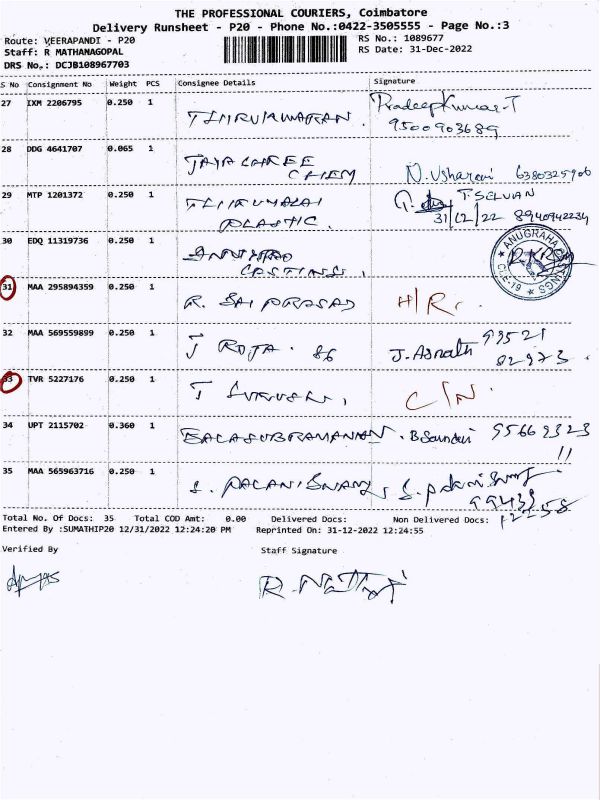 THE PROFESSIONAL COURIERS, Coimbatore
Delivery Runsheet - P20 - Phone No.:0422-3505555 - Page No.:3
Route: VEERAPANDI - P20 RS No.: 1089677
Staff: R MATHANAGOPAL RS Date: 31-Dec-2022
DRS No.: DCJB108967703
S No Consignment No Weight PCS Consignee Details Signature
27 IXM 2206795 0.250 1 Pradeep Kumar.T
9500903689
28 DDG 4641707 0.065 1 JAYA SHREE
CHEM N. Usharani 6380325906
29 MTP 1201372 0.250 1 THIRUMALAI T. SELVAN
PLASTIC. 31/12/22 8940942234
30 EDQ 11319736 0.250 1
CASTINGS. ANUGRAHA CASTINGS CBE-19
31 MAA 295894359 0.250 1 R. SAI PRASAD H/R.
32 MAA 569559899 0.250 1 J ROJA. 86 J. Asnath 99521
02973
33 TVR 5227176 0.250 1 T C/N.
34 UPT 2115702 0.360 1 BALASUBRAMANIAN. B 95669323
11
35 MAA 565963716 0.250 1 S. PALANISWAMY S. 
99439
12258
Total No. Of Docs: 35 Total COD Amt: 0.00 Delivered Docs: Non Delivered Docs:
Entered By :SUMATHIP20 12/31/2022 12:24:20 PM Reprinted On: 31-12-2022 12:24:55
Verified By Staff Signature